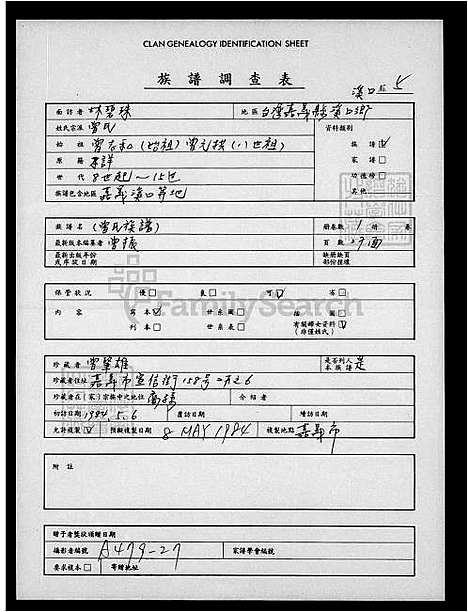 CLAN GENEALOGY IDENTIFICATION SHEET
族譜調查表
溪口 5
面訪者 林碧珠 地區 台灣嘉義縣溪口鄉
姓氏宗派 曾氏 資料類別
始祖 曾志和(始祖)曾元撲(八世祖) 族譜
原籍 不詳 家譜
世代 8世起~15世 功德榜
族譜包含地區 嘉義溪口等地 其他
族譜名 (曾氏族譜) 冊卷數 1 冊 卷
最新版本編著者 曾振 頁數 9面
最新出版年份 缺册缺頁
或序跋日期 部份撞爛
保管狀況 優 良 可 布
FamilySearch
內容 寫本 世系圖 插圖
刊本 世系表 有關婦女資料
(非僅姓氏)
珍藏者 曾肇雄 是否列入本族譜 是
珍藏者住址 嘉義市宣信街158號二F之6
珍藏者在(家)宗族中之地位 裔孫 介紹者
初訪日期 1984.5.6 覆訪日期 增訪日期
允許複製 預擬複製日期 8 MAY 1984 複製地點 嘉義市
附註
贈予者獎狀頒贈日期
攝影者編號 A479-27 家譜學會編號
要求複本 寄贈地址